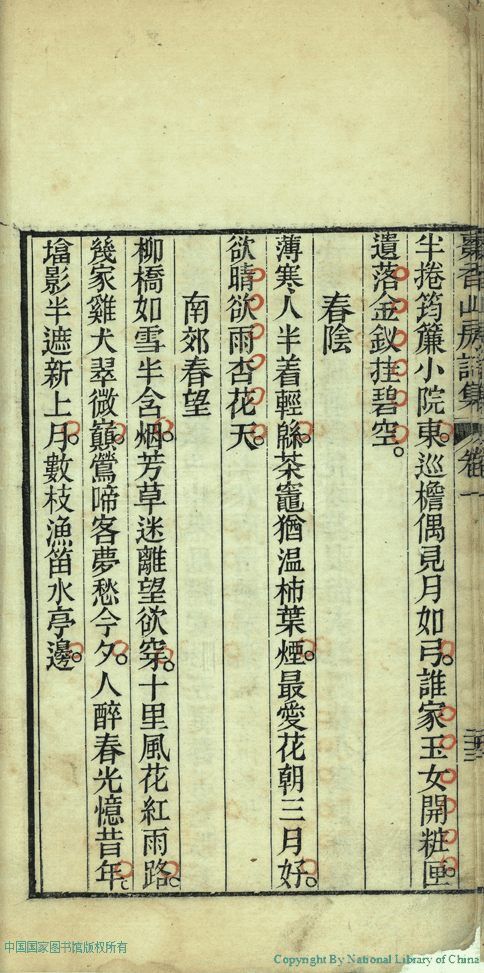 半捲筠簾小院東。巡檐偶見月如弓。誰家玉女開粧匣
遺落金釵挂碧空。
春陰
薄寒人半着輕緜。茶竈猶温柿葉煙。最愛花朝三月好。
欲晴欲雨杏花天。
南郊春望
柳橋如雪半含烟。芳草迷離望欲穿。十里風花紅雨路。
幾家雞犬翠微巔。鶯啼客夢愁今夕。人醉春光憶昔年。
墖影半遮新上月。數枝漁笛水亭邊。
中国国家图书馆版权所有
Copyright By National Library of China